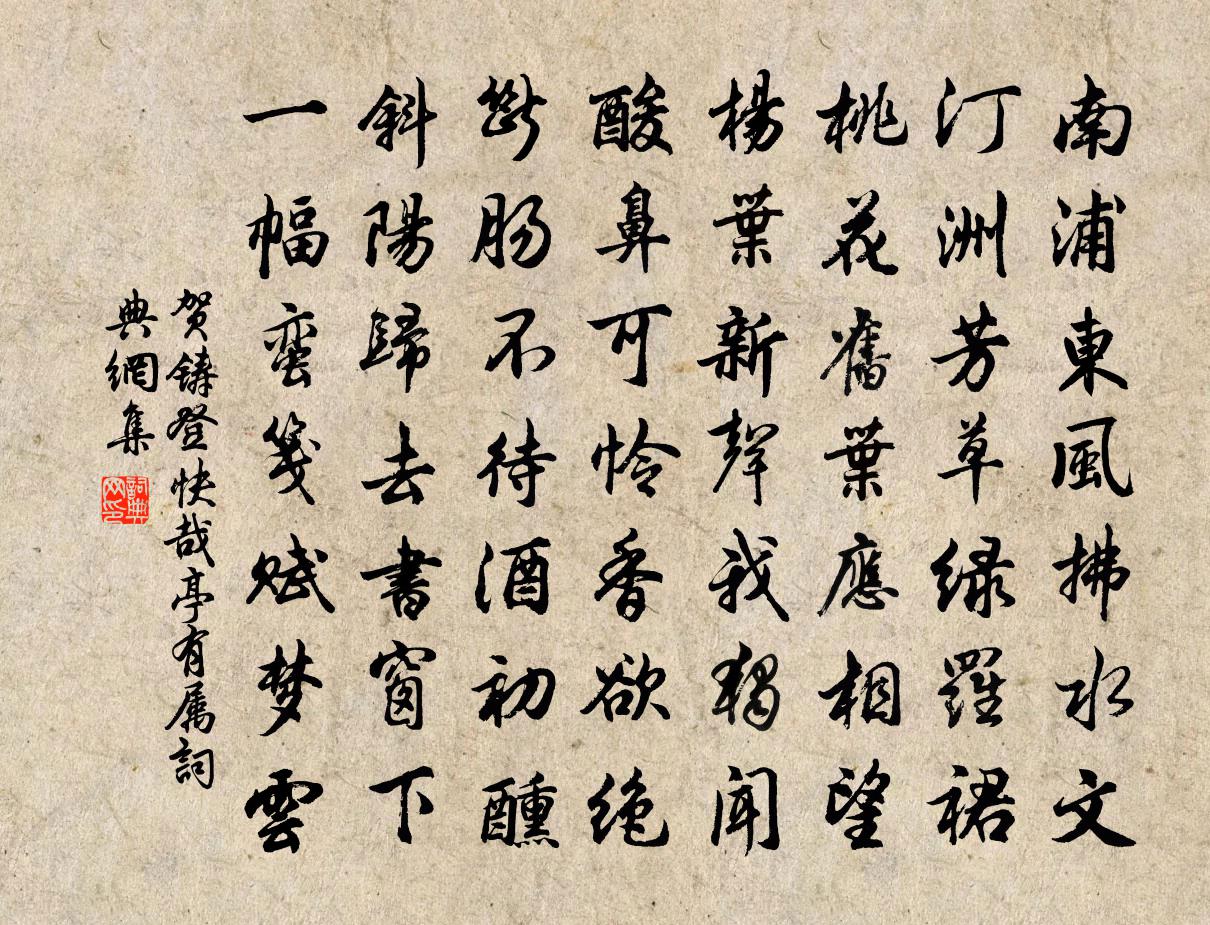 南浦東風拂水文
汀洲芳草綠羅裙
桃花舊葉應相望
楊葉新聲我獨聞
酸鼻可憐香欲絕
斷腸不待酒初醺
斜陽歸去書窗下
一幅蠻箋賦夢雲
賀鑄登快哉亭有屬詞
典網集
詞典网印